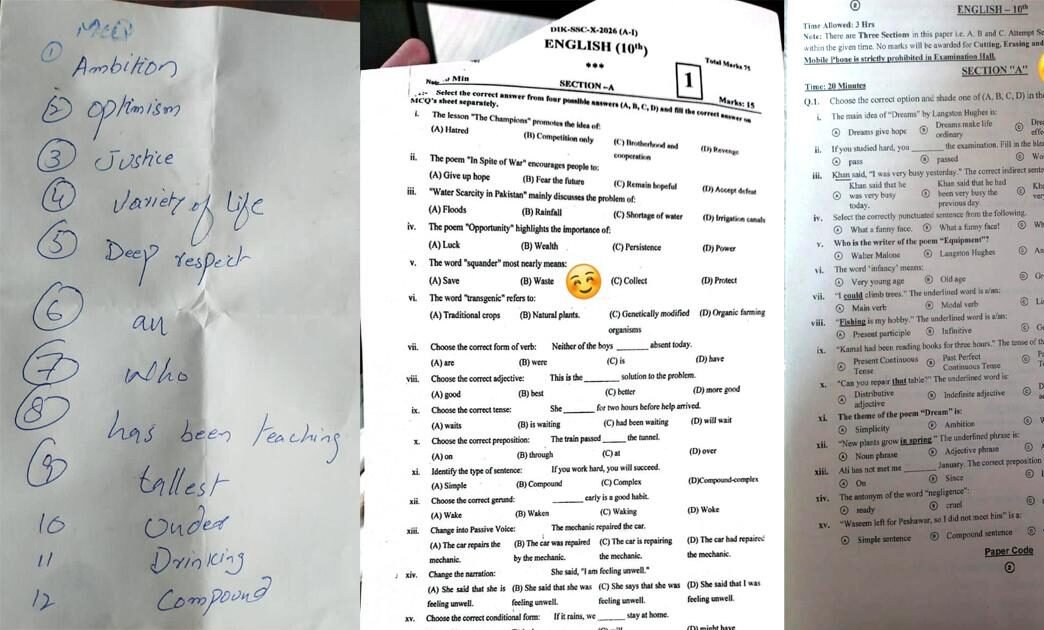 MCQ
1 Ambition
2 optimism
3 Justice
4 variety of life
5 Deep respect
6 an
7 who
8 has been teaching
9 tallest
10 Under
11 Drinking
12 Compound
DIK-SSC-X-2026 (A-I)
ENGLISH (10th)
***
Total Marks 75
Min
SECTION –A
1
Marks: 15
Select the correct answer from four possible answers (A, B, C, D) and fill the correct answer on
MCQ's sheet separately.
i. The lesson "The Champions" promotes the idea of:
(A) Hatred (B) Competition only (C) Brotherhood and cooperation (D) Revenge
ii. The poem "In Spite of War" encourages people to:
(A) Give up hope (B) Fear the future (C) Remain hopeful (D) Accept defeat
iii. "Water Scarcity in Pakistan" mainly discusses the problem of:
(A) Floods (B) Rainfall (C) Shortage of water (D) Irrigation canals
iv. The poem "Opportunity" highlights the importance of:
(A) Luck (B) Wealth (C) Persistence (D) Power
v. The word "squander" most nearly means:
(A) Save (B) Waste (C) Collect (D) Protect
vi. The word "transgenic" refers to:
(A) Traditional crops (B) Natural plants. (C) Genetically modified organisms (D) Organic farming
vii. Choose the correct form of verb: Neither of the boys ______ absent today.
(A) are (B) were (C) is (D) have
viii. Choose the correct adjective: This is the ______ solution to the problem.
(A) good (B) best (C) better (D) more good
ix. Choose the correct tense: She ______ for two hours before help arrived.
(A) waits (B) is waiting (C) had been waiting (D) will wait
x. Choose the correct preposition: The train passed ______ the tunnel.
(A) on (B) through (C) at (D) over
xi. Identify the type of sentence: If you work hard, you will succeed.
(A) Simple (B) Compound (C) Complex (D)Compound-complex
xii. Choose the correct gerund: ______ early is a good habit.
(A) Wake (B) Waken (C) Waking (D) Woke
xiii. Change into Passive Voice: The mechanic repaired the car.
(A) The car repairs the mechanic. (B) The car was repaired by the mechanic. (C) The car is repairing the mechanic. (D) The car had repaired the mechanic.
xiv. Change the narration: She said, "I am feeling unwell."
(A) She said that she is feeling unwell. (B) She said that she was feeling unwell. (C) She says that she was feeling unwell. (D) She said that I was feeling unwell.
xv. Choose the correct conditional form: If it rains, we ______ stay at home.
(D) might have
ENGLISH – 10th
Time Allowed: 3 Hrs
Note: There are Three Sections in this paper i.e. A, B and C. Attempt
within the given time. No marks will be awarded for Cutting, Erasing and
Mobile Phone is strictly prohibited in Examination Hall.
SECTION "A"
Time: 20 Minutes
Q.1. Choose the correct option and shade one of (A, B, C, D) in the
i. The main idea of "Dreams" by Langston Hughes is:
A Dreams give hope B Dreams make life ordinary C
ii. If you studied hard, you ______ the examination. Fill in the
A pass B passed C
iii. Khan said, "I was very busy yesterday." The correct indirect
A Khan said that he was very busy today. B Khan said that he had been very busy the previous day. C
iv. Select the correctly punctuated sentence from the following.
A What a fanny face. B What a funny face! C
v. Who is the writer of the poem "Equipment"?
A Walter Malone B Langston Hughes C
vi. The word 'infancy' means:
A Very young age B Old age C
vii. "I could climb trees." The underlined word is a/an:
A Main verb B Modal verb C
viii. "Fishing is my hobby." The underlined word is a/an:
A Present participle B Infinitive C
ix. "Kamal had been reading books for three hours." The tense of
A Present Continuous Tense B Past Perfect Continuous Tense C
x. "Can you repair that table?" The underlined word is:
A Distributive adjective B Indefinite adjective C
xi. The theme of the poem "Dream" is:
A Simplicity B Ambition C
xii. "New plants grow in spring." The underlined phrase is:
A Noun phrase B Adjective phrase C
xiii. Ali has not met me ______ January. The correct preposition
A On B Since C
xiv. The antonym of the word "negligence":
A ready B cruel C
xv. "Waseem left for Peshawar, so I did not meet him" is a:
A Simple sentence B Compound sentence C
Paper Code